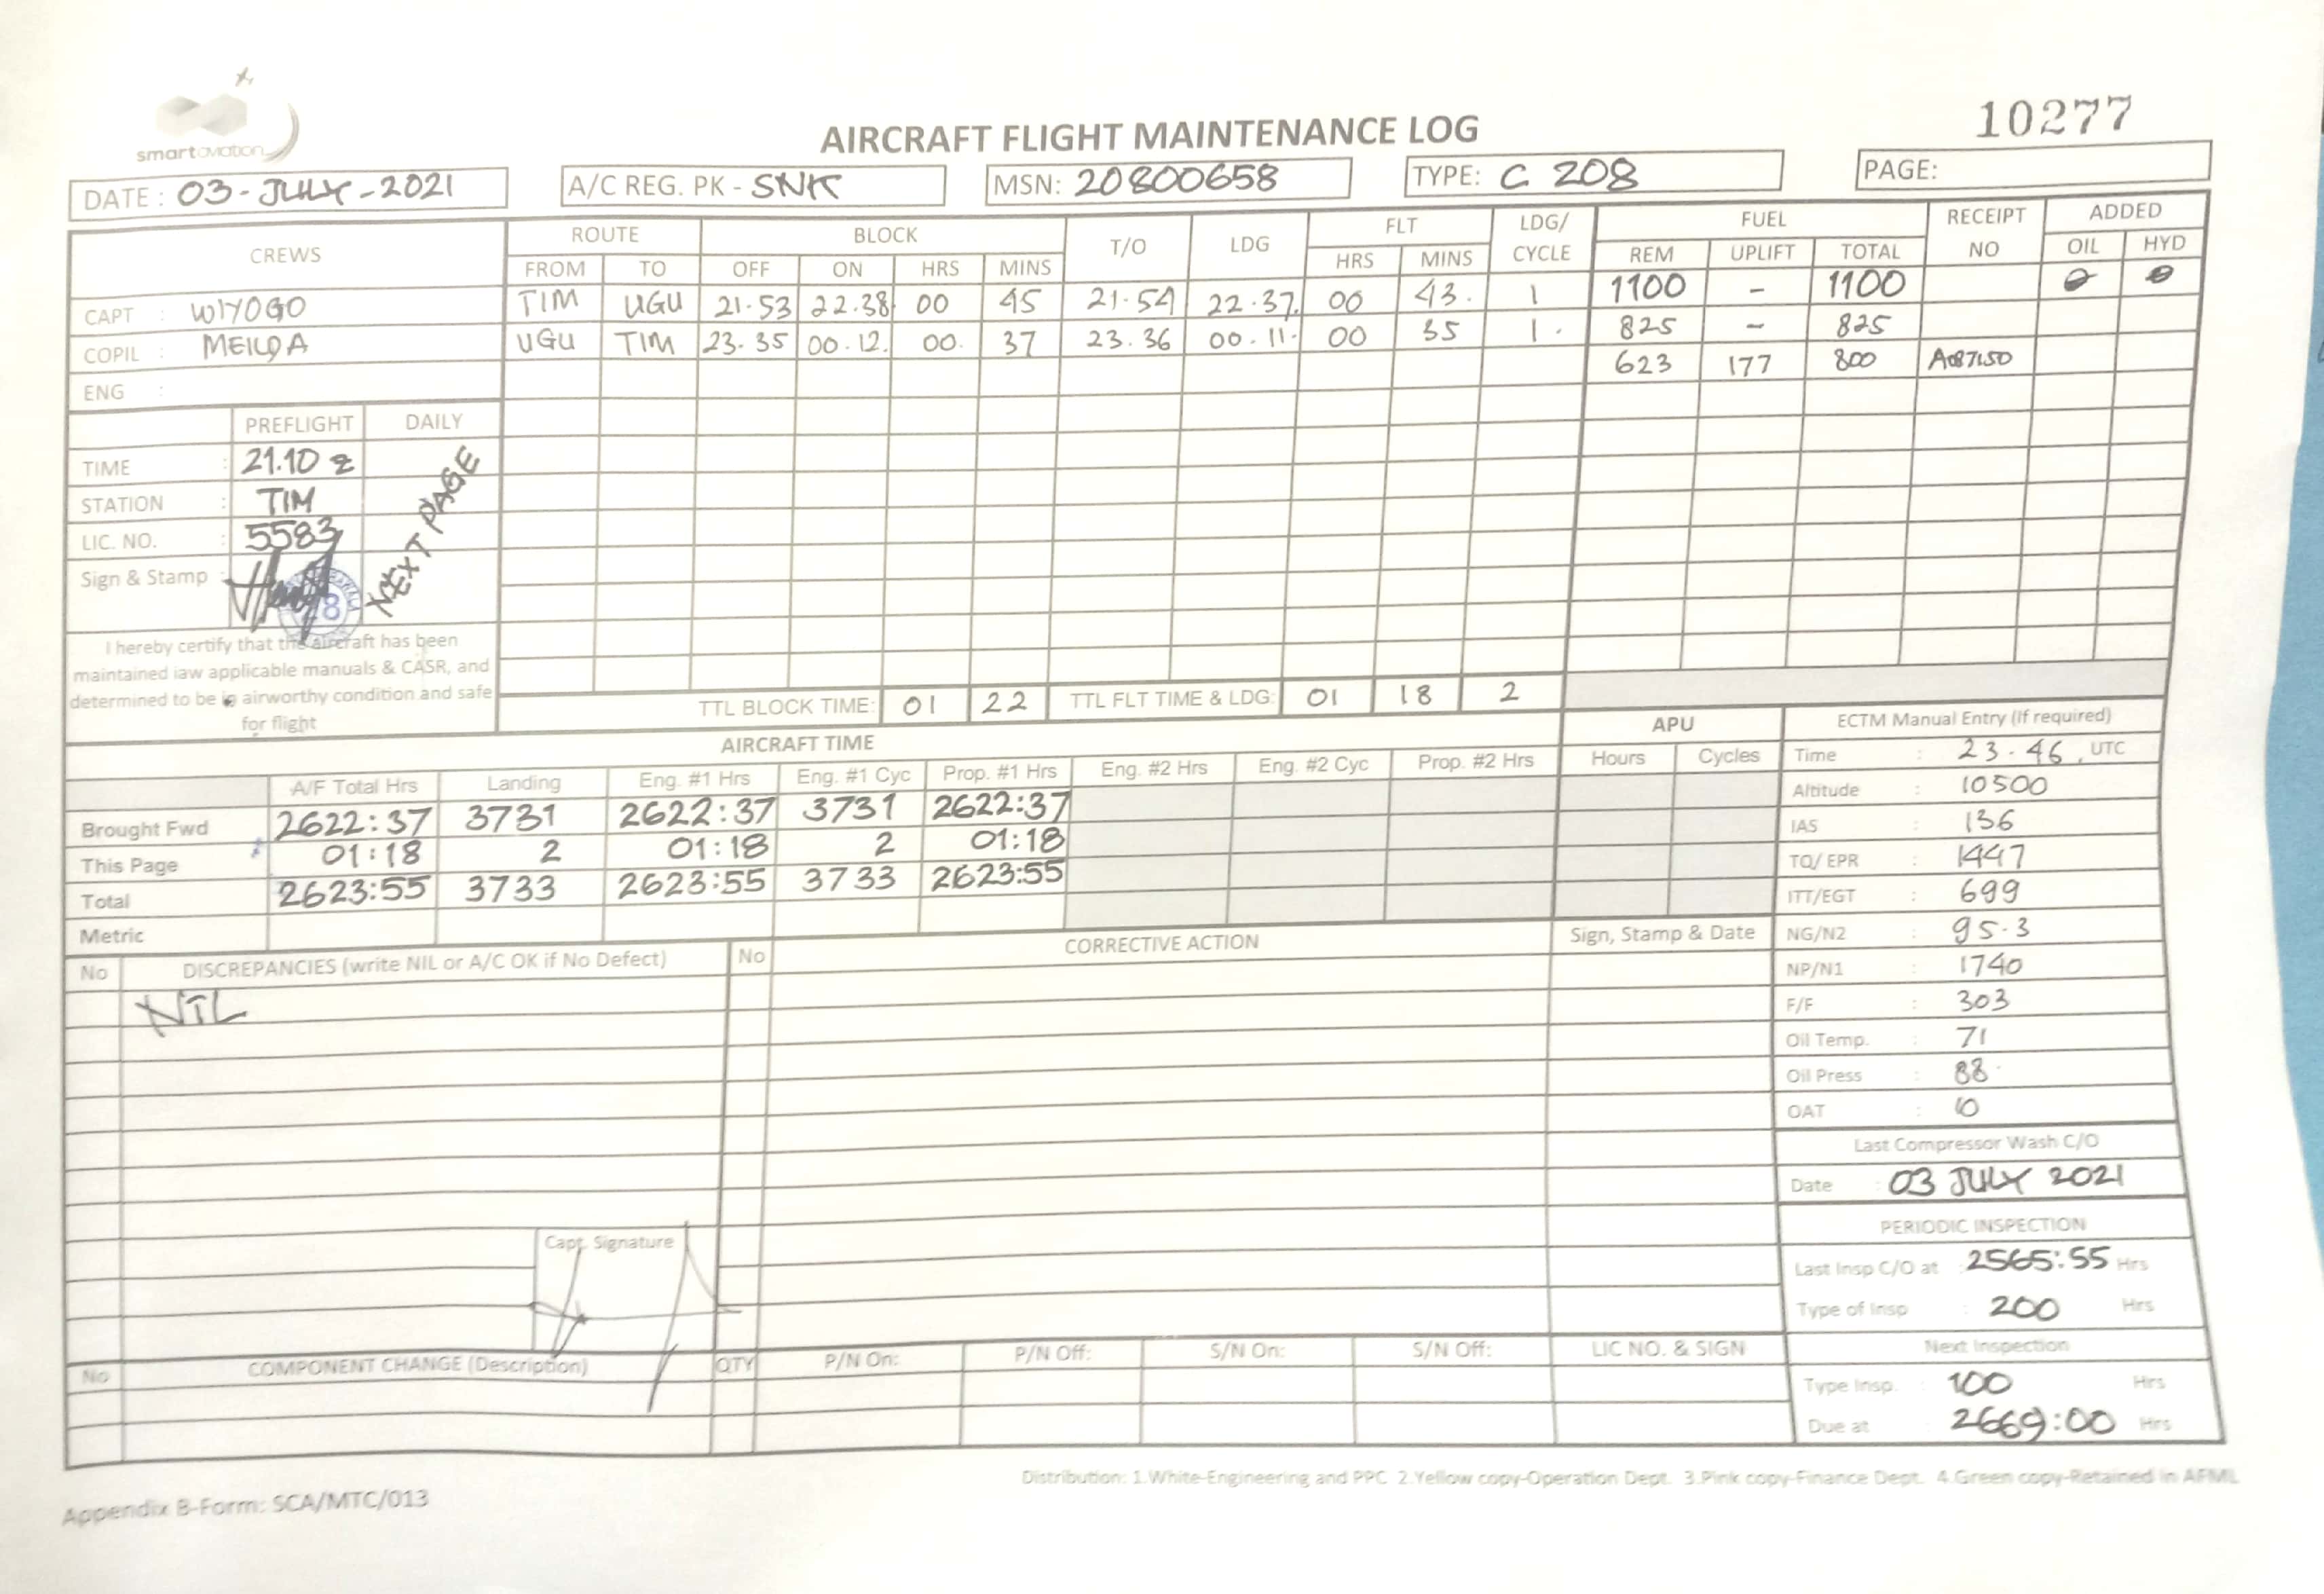 smartaviation
AIRCRAFT FLIGHT MAINTENANCE LOG
10277
DATE : 03-JULY-2021 A/C REG. PK - SNK MSN: 20800658 TYPE: C 208 PAGE:
CREWS ROUTE BLOCK T/O LDG FLT LDG/ CYCLE FUEL RECEIPT NO ADDED
FROM TO OFF ON HRS MINS HRS MINS REM UPLIFT TOTAL OIL HYD
CAPT : WIYOGO TIM UGU 21.53 22.38 00 45 21.54 22.37. 00 43. 1 1100 - 1100 0 0
COPIL : MEILDA UGU TIM 23.35 00.12. 00. 37 23.36 00.11. 00 35 1. 825 - 825
ENG : 623 177 800 A087150
PREFLIGHT DAILY
TIME : 21.10 z
STATION : TIM
LIC. NO. : 5583
Sign & Stamp :
NEXT PAGE
I hereby certify that the aircraft has been
maintained iaw applicable manuals & CASR, and
determined to be in airworthy condition and safe
for flight
TTL BLOCK TIME: 01 22 TTL FLT TIME & LDG: 01 18 2
AIRCRAFT TIME APU
A/F Total Hrs Landing Eng. #1 Hrs Eng. #1 Cyc Prop. #1 Hrs Eng. #2 Hrs Eng. #2 Cyc Prop. #2 Hrs Hours Cycles
Brought Fwd 2622:37 3731 2622:37 3731 2622:37
This Page 01:18 2 01:18 2 01:18
Total 2623:55 3733 2623:55 3733 2623:55
Metric
ECTM Manual Entry (If required)
Time : 23.46. UTC
Altitude : 10500
IAS : 136
TQ/ EPR : 1447
ITT/EGT : 699
NG/N2 : 95.3
NP/N1 : 1740
F/F : 303
Oil Temp. : 71
Oil Press : 88
OAT : 10
Last Compressor Wash C/O
Date : 03 JULY 2021
PERIODIC INSPECTION
Last Insp C/O at : 2565:55 Hrs
Type of Insp : 200 Hrs
Next Inspection
Type Insp. : 100 Hrs
Due at : 2669:00 Hrs
No DISCREPANCIES (write NIL or A/C OK if No Defect) No CORRECTIVE ACTION Sign, Stamp & Date
NIL
Capt. Signature
No COMPONENT CHANGE (Description) QTY P/N On: P/N Off: S/N On: S/N Off: LIC NO. & SIGN
Distribution: 1.White-Engineering and PPC 2.Yellow copy-Operation Dept. 3.Pink copy-Finance Dept. 4.Green copy-Retained in AFML
Appendix B-Form: SCA/MTC/013